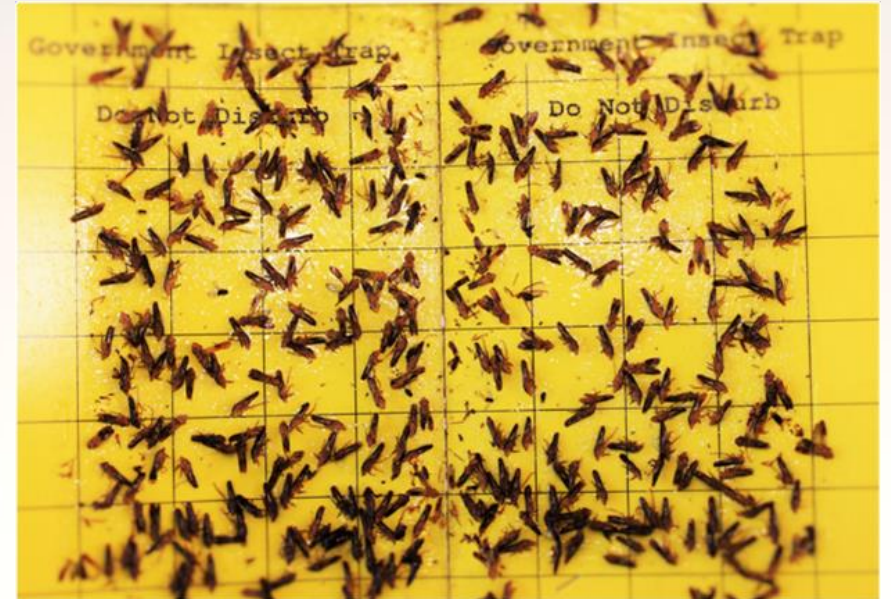 Government Insect Trap
Do Not Disturb
Government Insect Trap
Do Not Disturb